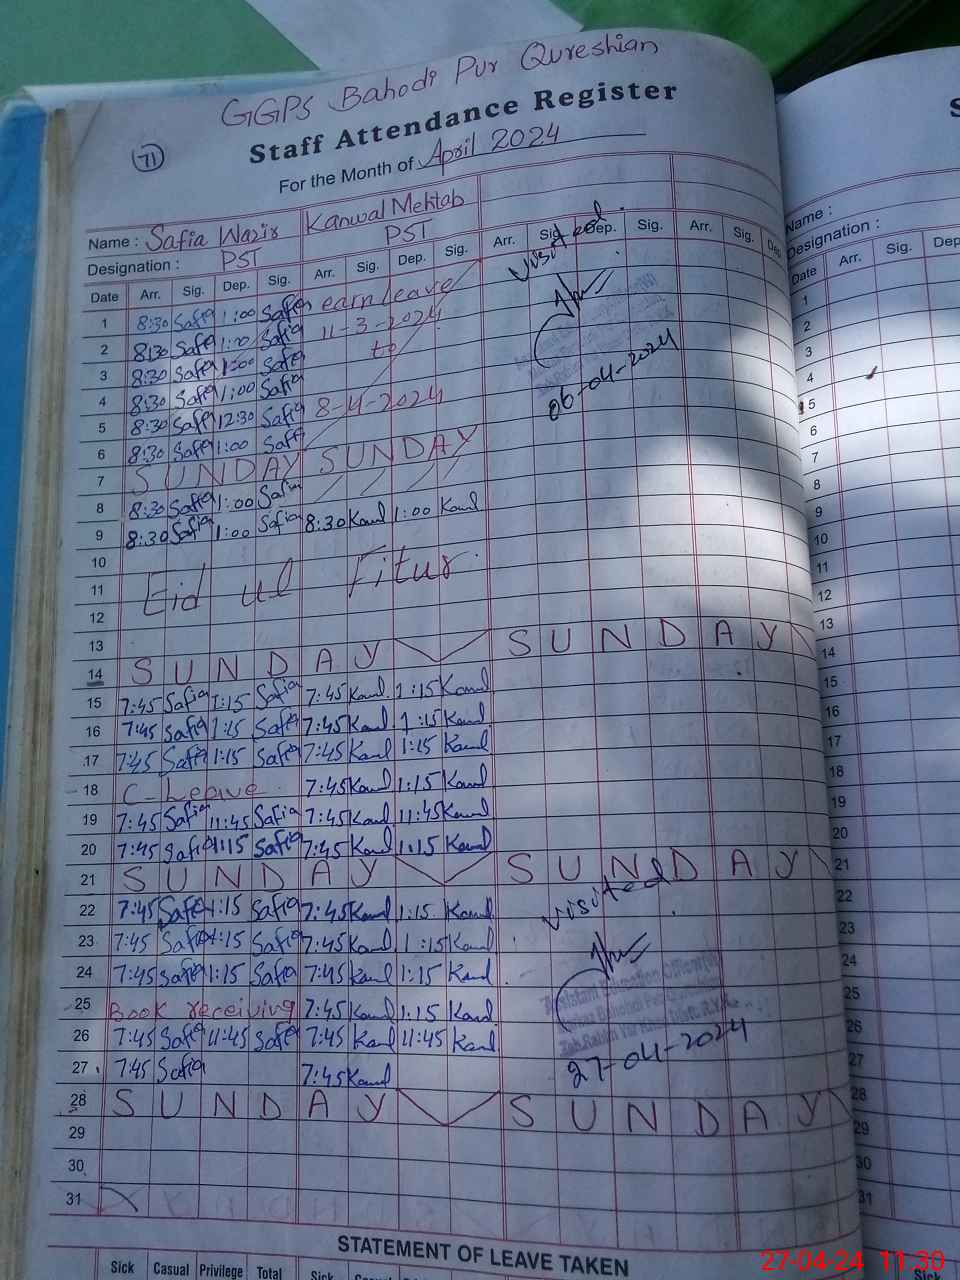 GGPS Bahodi Pur Qureshian
Staff Attendance Register
71
For the Month of April 2024
Name : Safia Wazir Kanwal Mehtab
Designation : PST PST
Date Arr. Sig. Dep. Sig. Arr. Sig. Dep. Sig. Arr. Sig. Dep. Sig. Arr. Sig. Dep
visited
1 8:30 Safia 1:00 Safia earn leave
2 8:30 Safia 1:00 Safia 11-3-2024
3 8:30 Safia 1:00 Safia to
4 8:30 Safia 1:00 Safia
06-04-2024
5 8:30 Safia 12:30 Safia 8-4-2024
6 8:30 Safia 1:00 Safia
7 SUNDAY SUNDAY
8 8:30 Safia 1:00 Safia
9 8:30 Safia 1:00 Safia 8:30 Kanl 1:00 Kanl
10
11 Eid ul Fitur
12
13
14 SUNDAY SUNDAY
15 7:45 Safia 1:15 Safia 7:45 Kanl 1:15 Kanl
16 7:45 Safia 1:15 Safia 7:45 Kanl 1:15 Kanl
17 7:45 Safia 1:15 Safia 7:45 Kanl 1:15 Kanl
18 C-Leave 7:45 Kanl 1:15 Kanl
19 7:45 Safia 11:45 Safia 7:45 Kanl 11:45 Kanl
20 7:45 Safia 1:15 Safia 7:45 Kanl 1:15 Kanl
21 SUNDAY SUNDAY
visited
22 7:45 Safia 1:15 Safia 7:45 Kanl 1:15 Kanl
23 7:45 Safia 1:15 Safia 7:45 Kanl 1:15 Kanl
24 7:45 Safia 1:15 Safia 7:45 Kanl 1:15 Kanl
25 Book receiving 7:45 Kanl 1:15 Kanl
Assistant Education Officer
26 7:45 Safia 11:45 Safia 7:45 Kanl 11:45 Kanl
27 7:45 Safia 7:45 Kanl
27-04-2024
28 SUNDAY SUNDAY
29
30
31
STATEMENT OF LEAVE TAKEN
Sick Casual Privilege Total Sick
Name :
Designation :
Date Arr. Sig. Dep
1
2
3
4
5
6
7
8
9
10
11
12
13
14
15
16
17
18
19
20
21
22
23
24
25
26
27
28
29
30
31
Sick
27-04-24 11:30